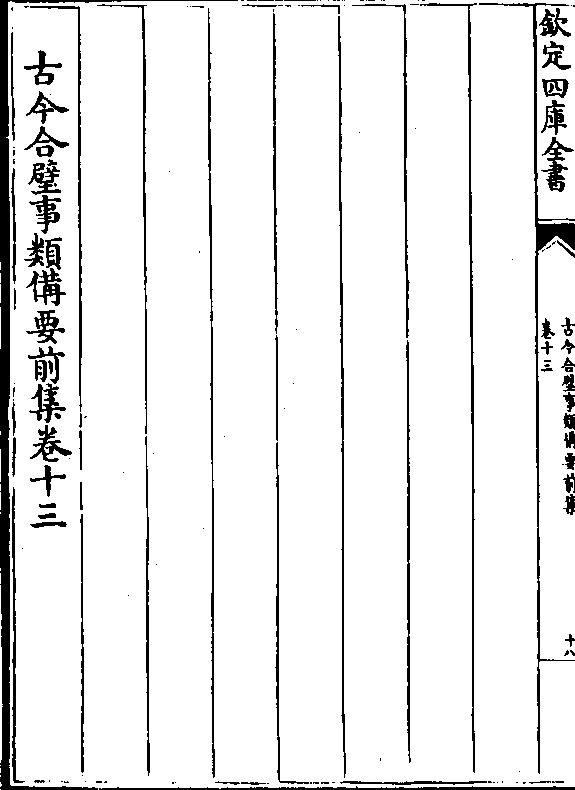 欽定四庫全書
古今合璧事類備要前集
卷十三
十八
古今合璧事類備要前集卷十三